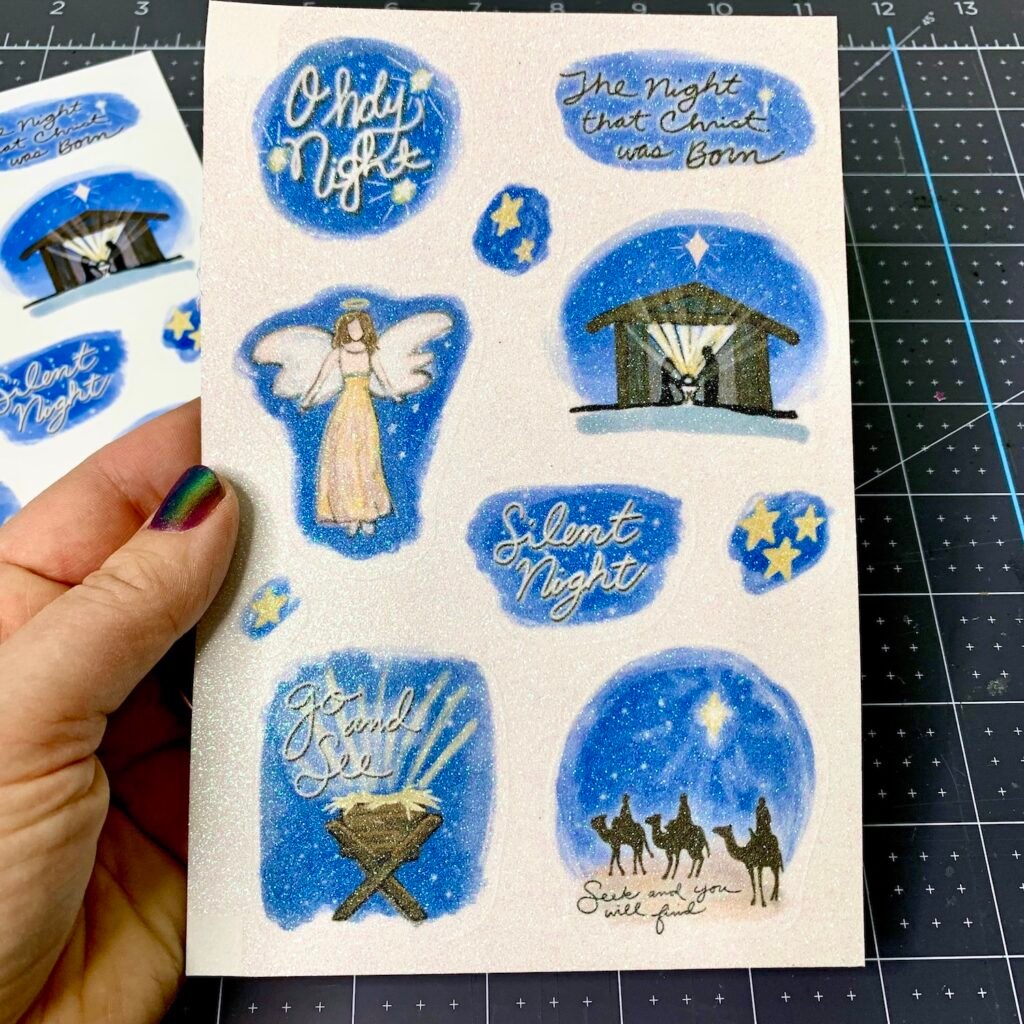 2
3
4
5
6
7
8
9
10
11
12
13
O holy
Night
The Night
that Christ
was Born
Silent
Night
Go
and
See
Seek and you
will find
Night
that Christ
was Born
Silent
Night